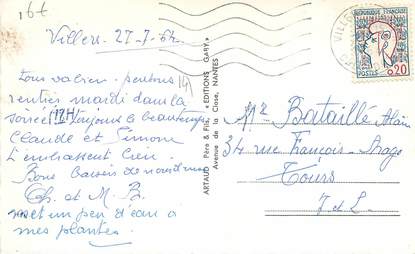 16f
Villers 27-7-62
tous va bien. pensons
rentrer mardi dans la
soirée (19H) Toujours le beau temps
Claude et Simone
t'embrassent bien.
Bons baisers de nous deux
et M. B.
met un peu d'eau à
mes plantes.
ARTAUD Père & Fils, « EDITIONS GABY »
Avenue de la Close, NANTES
REPUBLIQUE FRANÇAISE
POSTES 0,20
VILLE
Mr Bataille Alain
34 rue François-Arago
Tours
I-d-L.